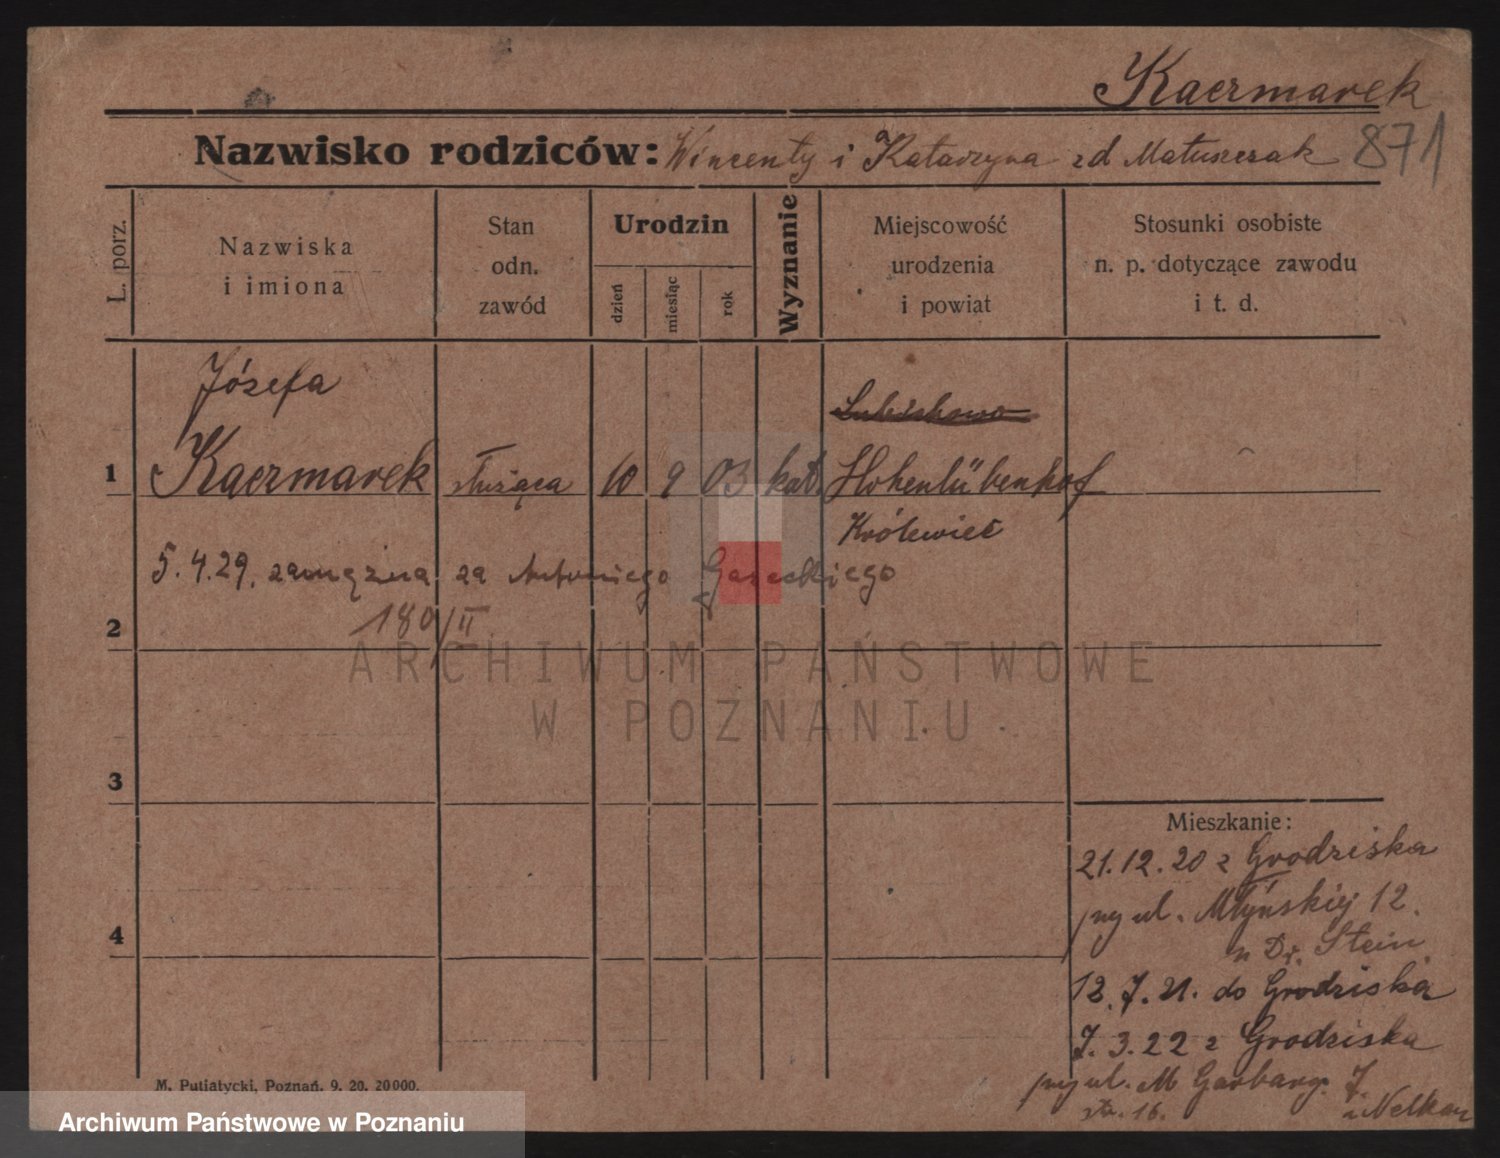 Kaczmarek
871
Nazwisko rodziców: Wincenty i Katarzyna zd Matuszczak
L. porz.
Nazwiska
i imiona
Stan
odn.
zawód
Urodzin
dzień
miesiąc
rok
Wyznanie
Miejscowość
urodzenia
i powiat
Stosunki osobiste
n. p. dotyczące zawodu
i t. d.
Józefa
1 Kaczmarek służąca 10 9 03 kat. Hohenlübenhof
Królewiec
5.4.29. zamężna za Antoniego
180/II
2
3
4
ARCHIWUM PAŃSTWOWE
W POZNANIU
Mieszkanie:
21.12.20 z Grodziska
przy ul. Młyńskiej 12.
u Dr. Stein.
12.7.21. do Grodziska
7.3.22 z Grodziska
przy ul. M Garbary 7
16. u
M. Putiatycki, Poznań. 9. 20. 20000.
Archiwum Państwowe w Poznaniu